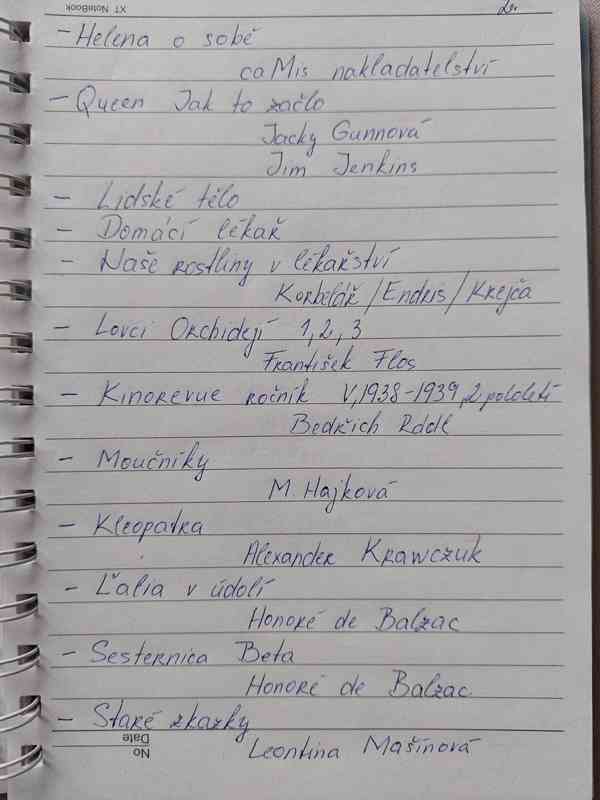 XT NoteBook
2.
- Helena o sobě
caMis nakladatelství
- Queen Jak to začlo
Jacky Gunnová
Jim Jenkins
- Lidské tělo
- Domácí lékař
- Naše rostliny v lékařství
Korbelář/Endris/Krejča
- Lovci Orchidejí 1,2,3
František Flos
- Kinorevue ročník V,1938-1939,2 pololetí
Bedřich Rádl
- Moučníky
M. Hajková
- Kleopatra
Alexander Krawczuk
- Ľalia v údolí
Honoré de Balzac
- Sesternica Beta
Honoré de Balzac
- Staré zkazky
Leontina Mašínová
No
Date